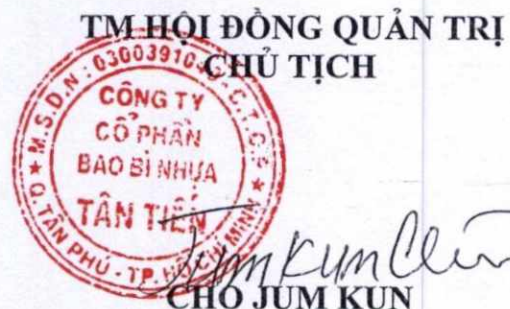 TM HỘI ĐỒNG QUẢN TRỊ
CHỦ TỊCH
M.S.D.N: 03003910
C.T.C.P
CÔNG TY
CỔ PHẦN
BAO BÌ NHỰA
TÂN TIẾN
Q. TÂN PHÚ - TP. HỒ CHÍ MINH
Jum Kun
CHO JUM KUN